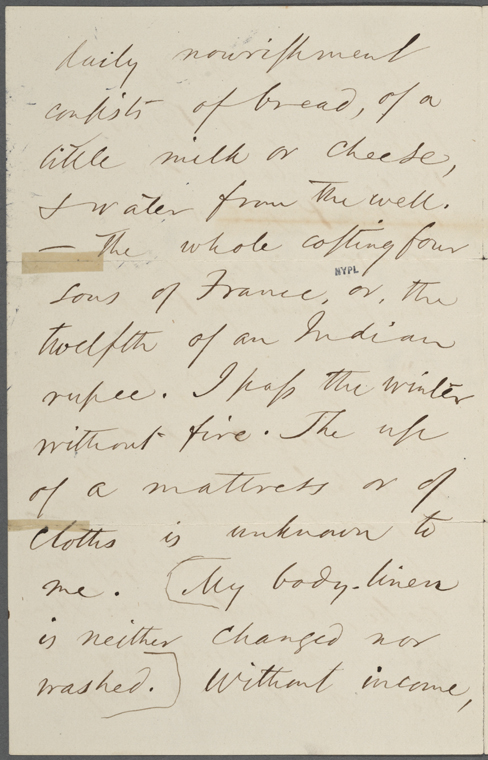 daily nourishment
consists of bread, of a
little milk or cheese,
& water from the well.
— The whole costing four
NYPL
sous of France, or, the
twelfth of an Indian
rupee. I pass the winter
without fire. The use
of a mattress or of
cloths is unknown to
me. [My body-linen
is neither changed nor
washed.] Without income,